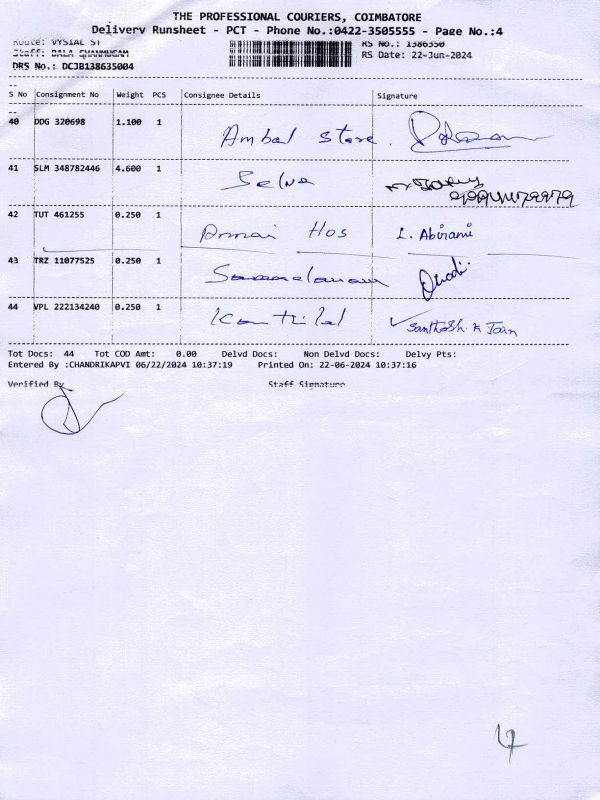 THE PROFESSIONAL COURIERS, COIMBATORE
Delivery Runsheet - PCT - Phone No.:0422-3505555 - Page No.:4
Route: VYSIAL ST RS No.: 1386350
Staff: BALA SHANMUGAM RS Date: 22-Jun-2024
DRS No.: DCJB138635004
S No Consignment No Weight PCS Consignee Details Signature
40 DDG 320698 1.100 1 Ambal Store.
41 SLM 348782446 4.600 1 Selva
42 TUT 461255 0.250 1 Annai Hos L. Abirami
43 TRZ 11077525 0.250 1
44 VPL 222134240 0.250 1 Kantilal Santhosh.K Jain
Tot Docs: 44 Tot COD Amt: 0.00 Delvd Docs: Non Delvd Docs: Delvy Pts:
Entered By :CHANDRIKAPVI 06/22/2024 10:37:19 Printed On: 22-06-2024 10:37:16
Verified By Staff Signature